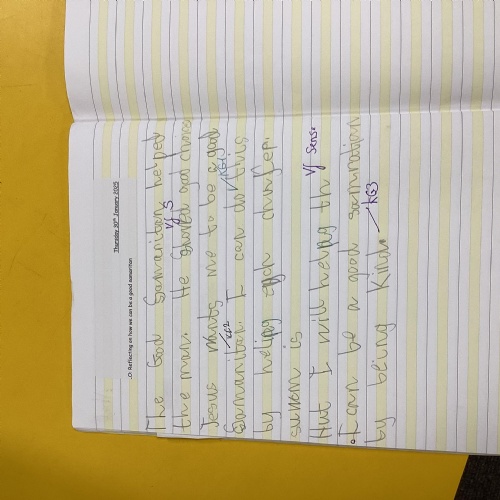 Thursday 30th January 2025
LO: Reflecting on how we can be a good samaritan
The Good Samaritan helped
the man. He good choices
VF S
Jesus wants me to be a good
KG2
Samaritan. I can do this
KG1
by helping each
is
Hut I will helpng th
VF Sense
I can be a good samaratian
by being kind.
KG3